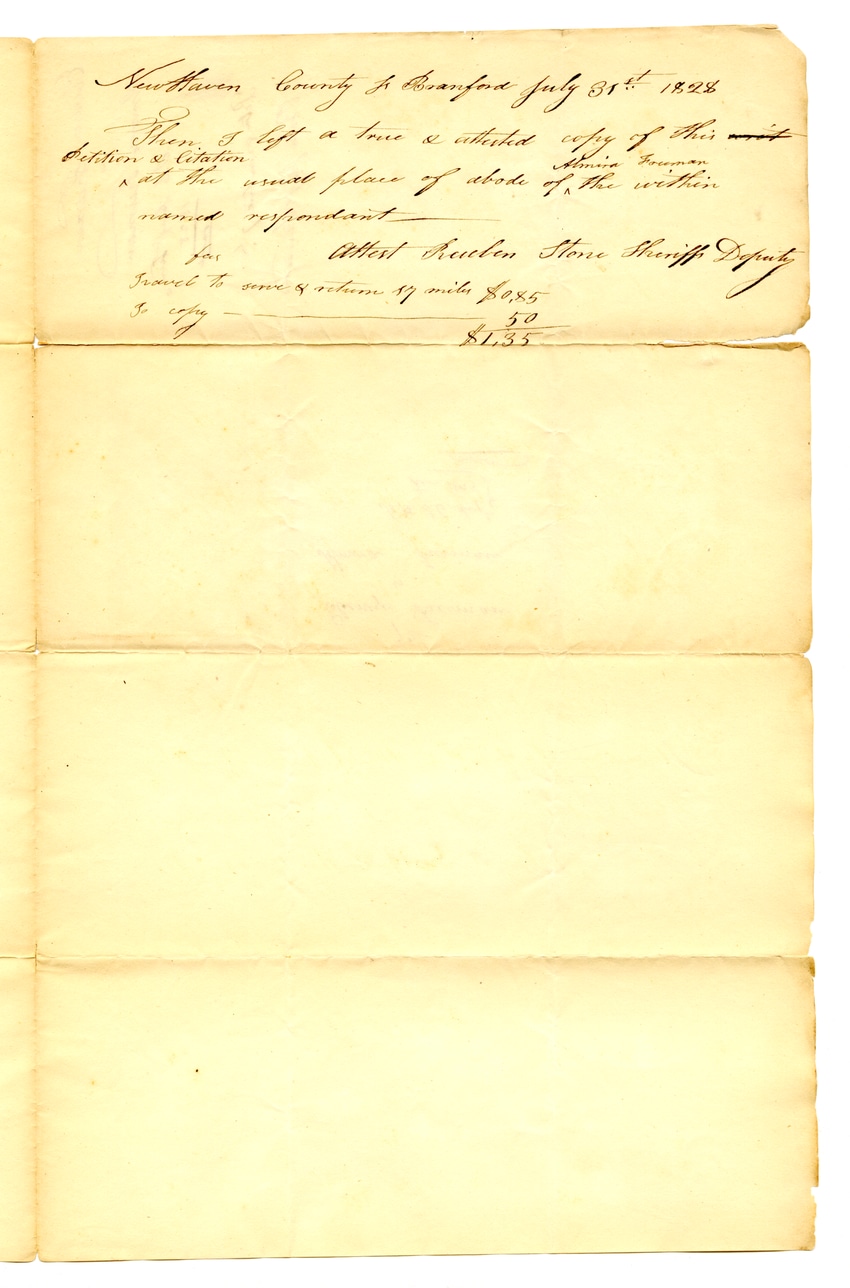 New Haven County ss Branford July 31st 1828
Then I left a true & attested copy of this writ
Petition & Citation Almira Freeman
^ at the usual place of abode of ^ the within
named respondant
fees Attest Reuben Stone Sheriffs Deputy
Travel to serve & return 17 miles $0,85
To copy 50
$1,35